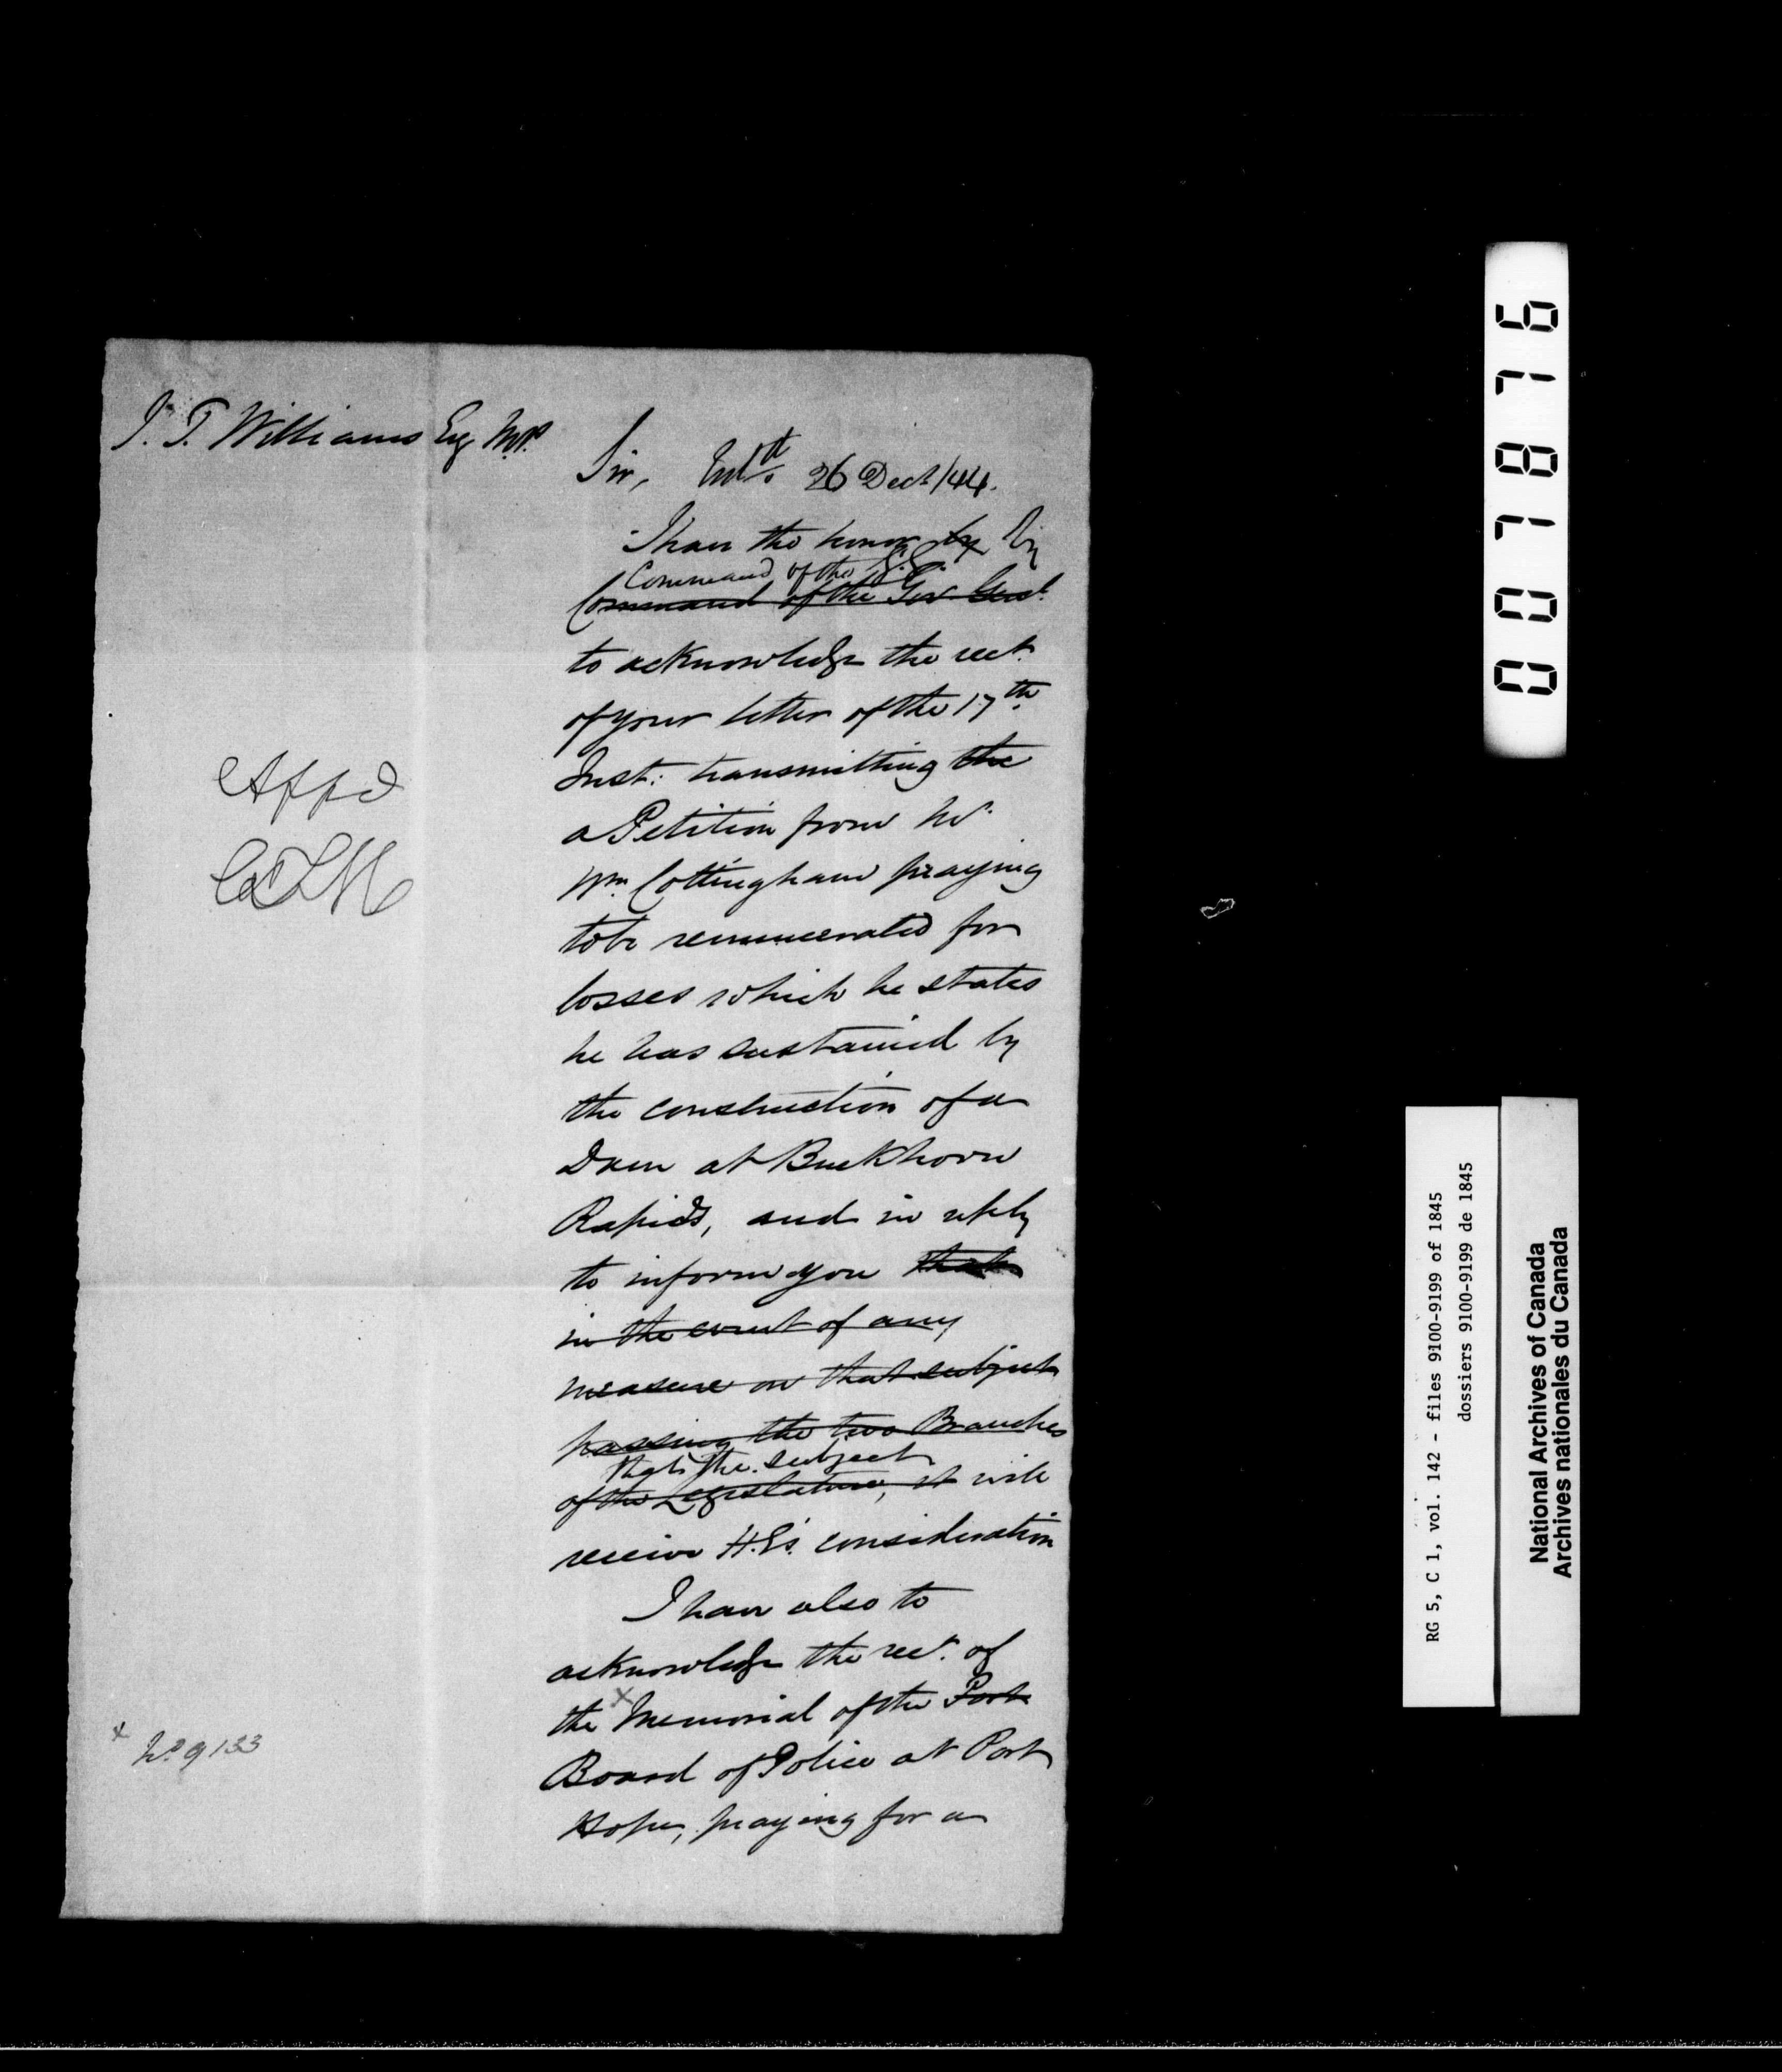 J. T. Williams Esq M.P.
Sir, 26 Decr /44.
I have the honor by by
Command of the G. G.
Command of the Gov. Genl.
to acknowledge the rect.
of your letter of the 17th.
Inst: transmitting the
a Petition from Mr.
Wm. Cottingham praying
to be remunerated for
losses which he states
he has sustained by
the construction of a
Dam at Buckhorn
Rapids, and in reply
to inform you that
in the event of any
measure on that subject
passing the two Branches
that the subject
of the Legislature, it will
receive H.E's. consideration
I have also to
acknowledge the rect. of
the x Memorial of the Port
Board of Police at Port
Hope, praying for a
Appd
x No. 9133
007876
RG 5, C 1, vol. 142 - files 9100-9199 of 1845
dossiers 9100-9199 de 1845
National Archives of Canada
Archives nationales du Canada